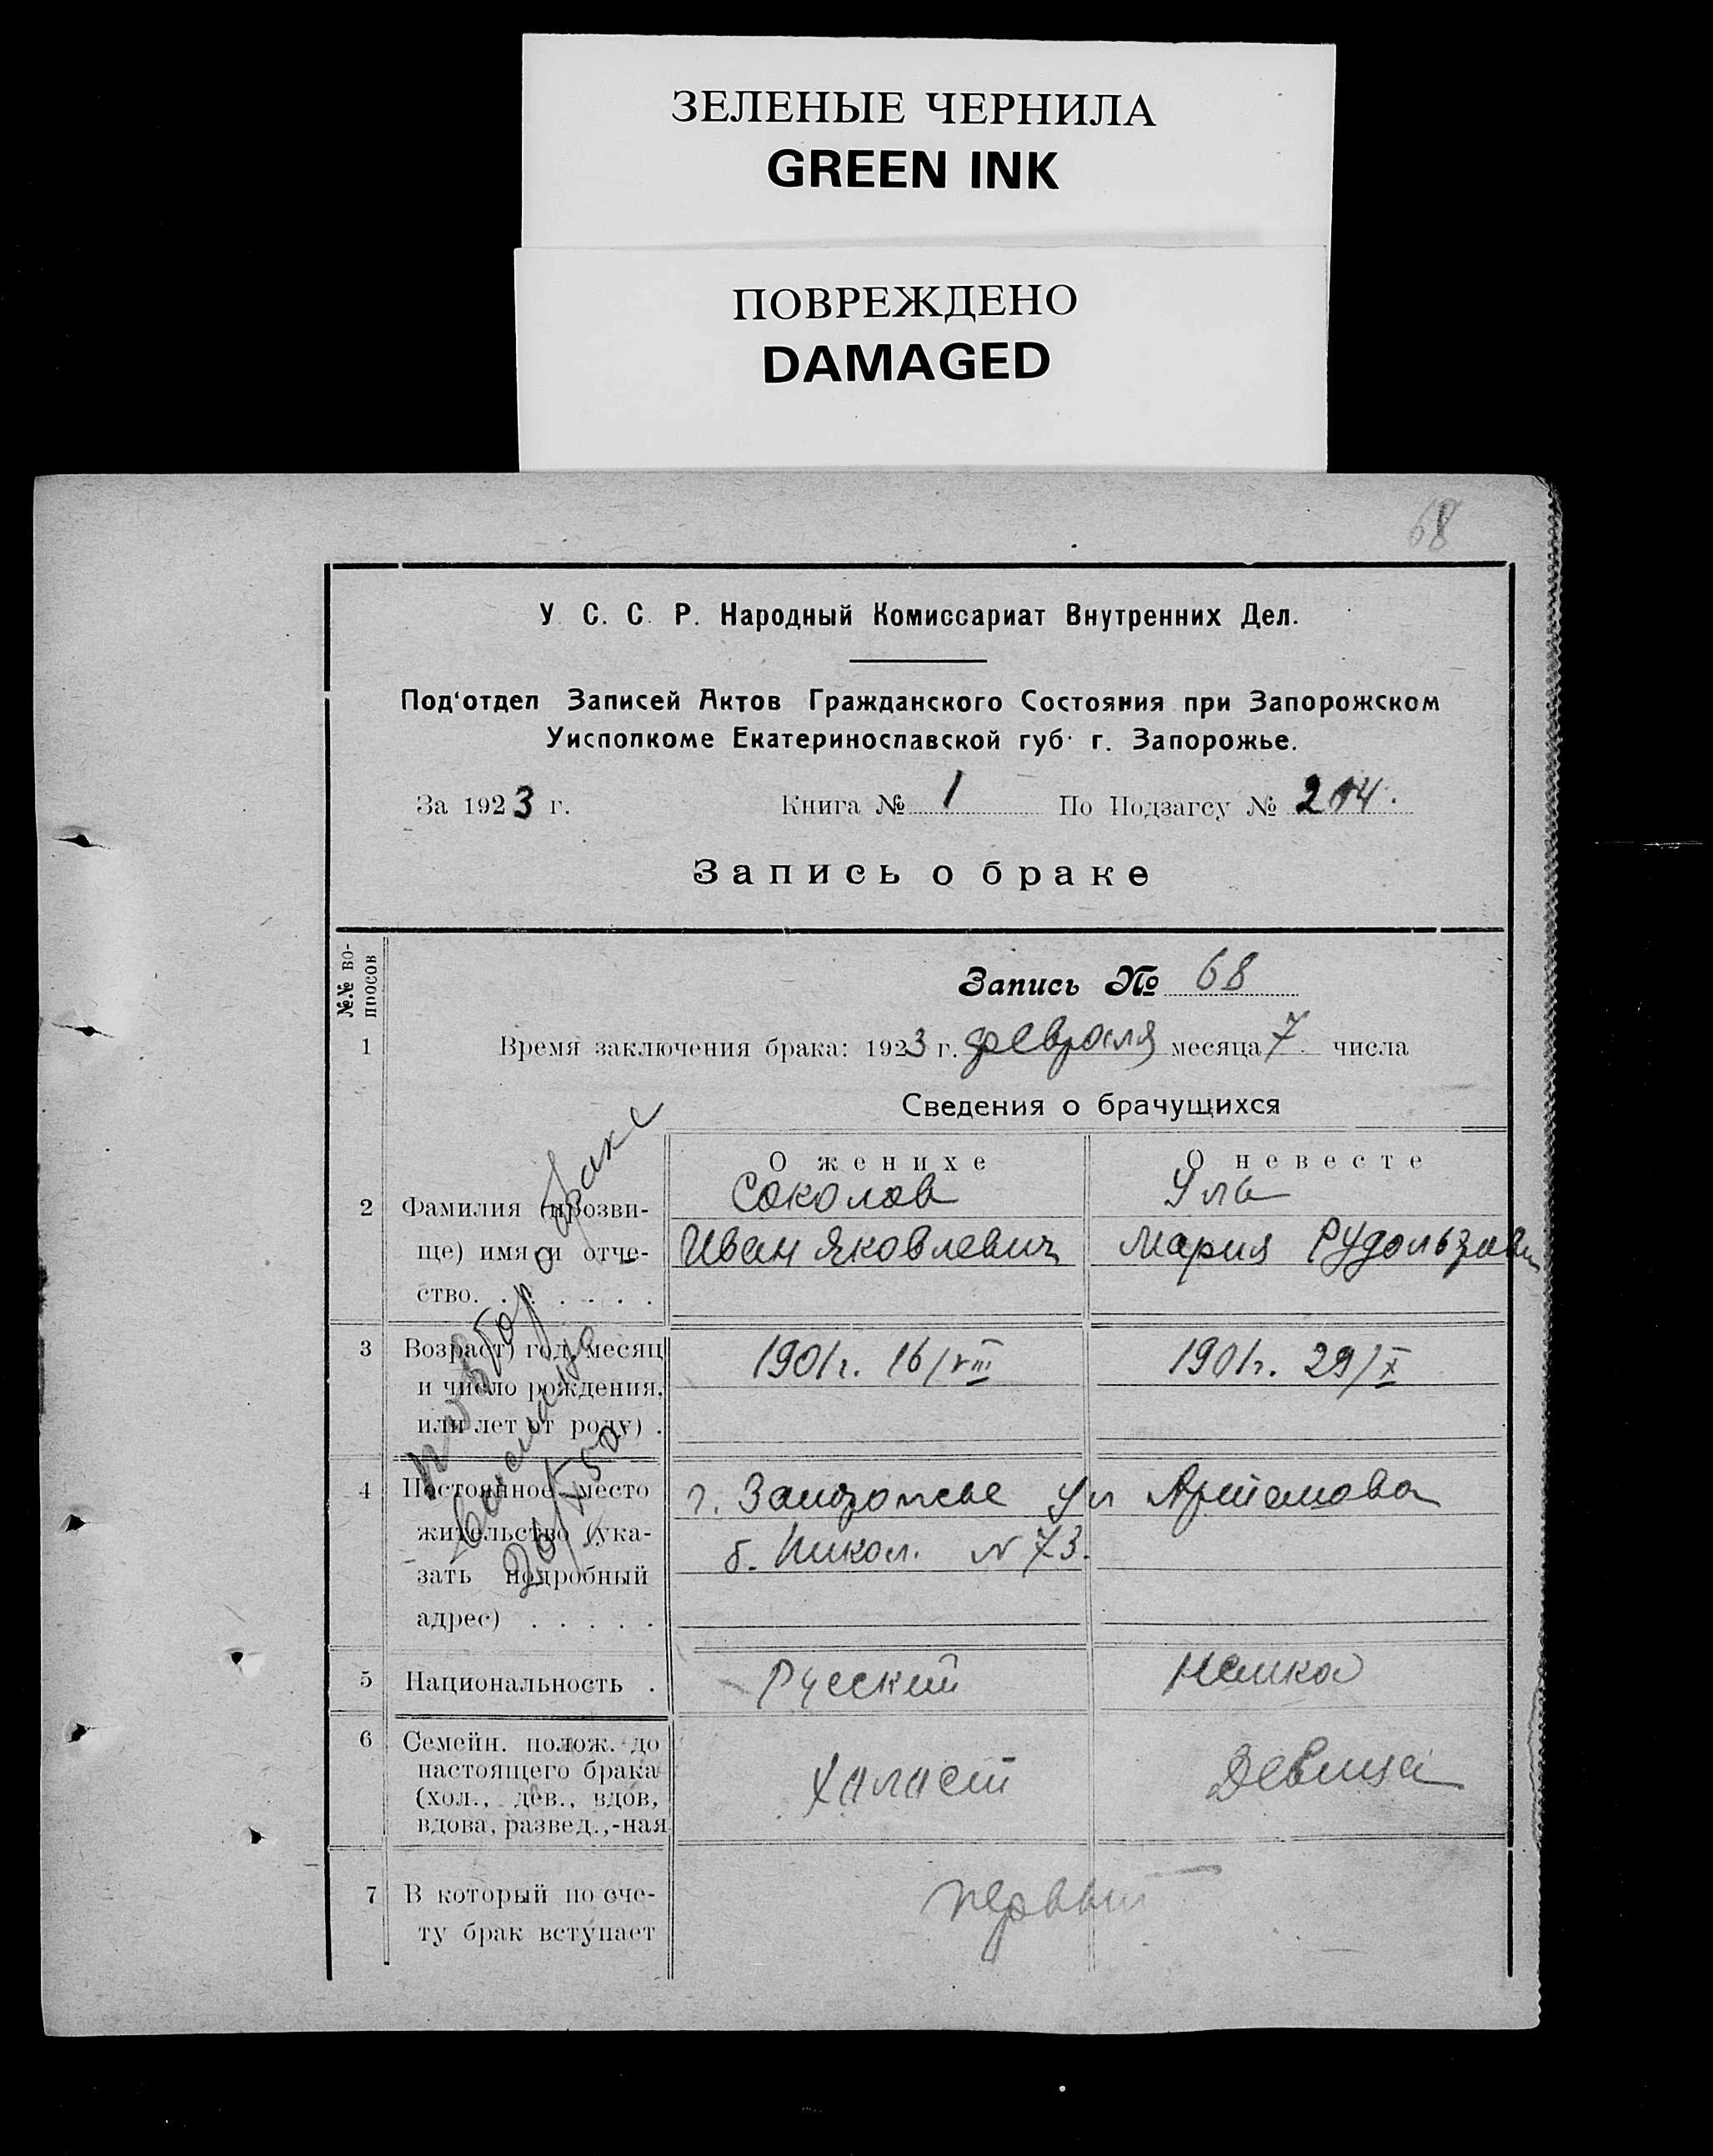 ЗЕЛЕНЫЕ ЧЕРНИЛА
GREEN INK
ПОВРЕЖДЕНО
DAMAGED
68
У. С. С. Р. Народный Комиссариат Внутренних Дел.
Под'отдел Записей Актов Гражданского Состояния при Запорожском
Уисполкоме Екатеринославской губ. г. Запорожье.
За 1923 г. Книга № 1 По Подзагсу № 214.
Запись о браке
№№ во-
просов
Запись № 68
1 Время заключения брака: 1923 г. февраля месяца 7 числа
Сведения о брачущихся
О женихе О невесте
2 Фамилия (прозви- Соколов
ще) имя и отче- Иван Яковлевич Мария
ство. . . . . . .
3 Возраст) год, месяц 1901г. 16/VIII 1901г. 29/X
и число рождения,
или лет от роду) .
4 Постоянное место г. Запорожье ул Артемова
жительство (ука- б. Никол. N 73.
зать подробный
адрес) . . . . .
5 Национальность . Русский Немка
6 Семейн. полож. до
настоящего брака
(хол., дев., вдов, Халост Девица
вдова, развед.,-ная
7 В который по сче- первый
ту брак вступает
о браке